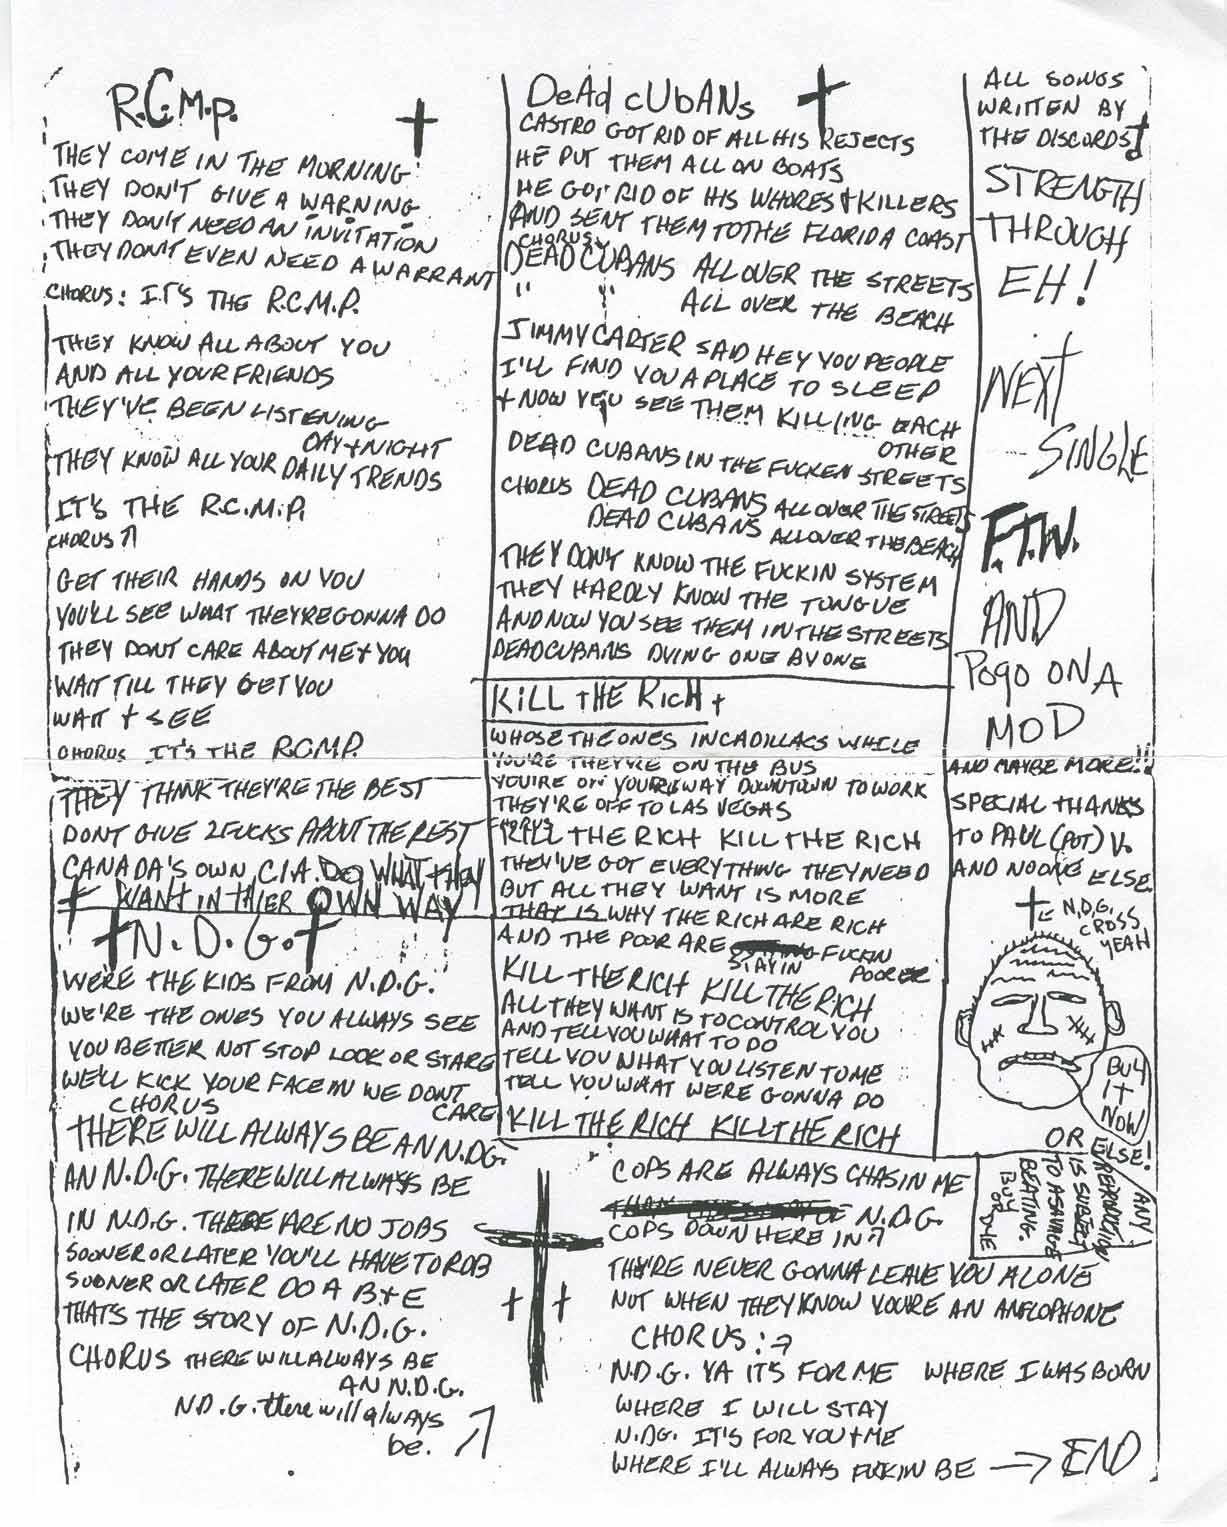 R.C.M.P.
THEY COME IN THE MORNING
THEY DON'T GIVE A WARNING
THEY DON'T NEED AN INVITATION
THEY DON'T EVEN NEED A WARRANT
CHORUS: IT'S THE R.C.M.P.
THEY KNOW ALL ABOUT YOU
AND ALL YOUR FRIENDS
THEY'VE BEEN LISTENING
DAY + NIGHT
THEY KNOW ALL YOUR DAILY TRENDS
IT'S THE R.C.M.P.
CHORUS ↑
GET THEIR HANDS ON YOU
YOU'LL SEE WHAT THEYRE GONNA DO
THEY DONT CARE ABOUT ME + YOU
WAIT TILL THEY GET YOU
WAIT + SEE
CHORUS IT'S THE RCMP.
THEY THINK THEY'RE THE BEST
DONT GIVE 2 FUCKS ABOUT THE REST
CANADA'S OWN C.I.A. DO WHAT THEY
WANT IN THIER OWN WAY
N.D.G.
WE'RE THE KIDS FROM N.D.G.
WE'RE THE ONES YOU ALWAYS SEE
YOU BETTER NOT STOP LOOK OR STARE
WE'LL KICK YOUR FACE IN WE DONT
CARE
CHORUS
THERE WILL ALWAYS BE AN N.D.G.
AN N.D.G. THERE WILL ALWAYS BE
IN N.D.G. THERE ARE NO JOBS
SOONER OR LATER YOU'LL HAVE TO ROB
SOONER OR LATER DO A B+E
THAT'S THE STORY OF N.D.G.
CHORUS THERE WILL ALWAYS BE
AN N.D.G.
N.D.G. there will always
be.
DeAd cUbANs
CASTRO GOT RID OF ALL HIS REJECTS
HE PUT THEM ALL ON BOATS
HE GOT RID OF HIS WHORES + KILLERS
AND SENT THEM TO THE FLORIDA COAST
CHORUS
DEAD CUBANS ALL OVER THE STREETS
" " ALL OVER THE BEACH
JIMMY CARTER SAID HEY YOU PEOPLE
I'LL FIND YOU A PLACE TO SLEEP
+ NOW YOU SEE THEM KILLING EACH
OTHER
DEAD CUBANS IN THE FUCKEN STREETS
CHORUS DEAD CUBANS ALL OVER THE STREETS
DEAD CUBANS ALL OVER THE BEACH
THEY DON'T KNOW THE FUCKIN SYSTEM
THEY HARDLY KNOW THE TONGUE
AND NOW YOU SEE THEM IN THE STREETS
DEAD CUBANS DYING ONE BY ONE
KiLL THE RiCH
WHOSE THE ONES IN CADILLACS WHILE
YOU'RE THEY'RE ON THE BUS
YOU'RE ON YOUR WAY DOWNTOWN TO WORK
THEY'RE OFF TO LAS VEGAS
CHORUS
KILL THE RICH KILL THE RICH
THEY'VE GOT EVERYTHING THEY NEED
BUT ALL THEY WANT IS MORE
THAT IS WHY THE RICH ARE RICH
AND THE POOR ARE FUCKIN
STAYIN POORER
KILL THE RICH KILL THE RICH
ALL THEY WANT IS TO CONTROL YOU
AND TELL YOU WHAT TO DO
TELL YOU WHAT YOU LISTEN TO ME
TELL YOU WHAT WERE GONNA DO
KILL THE RICH KILL THE RICH
COPS ARE ALWAYS CHASIN ME
N.D.G.
COPS DOWN HERE IN ↑
THEY'RE NEVER GONNA LEAVE YOU ALONE
NOT WHEN THEY KNOW YOU'RE AN ANFLOPHONE
CHORUS: →
N.D.G. YA IT'S FOR ME WHERE I WAS BORN
WHERE I WILL STAY
N.DG. IT'S FOR YOU + ME
WHERE I'LL ALWAYS FUCKIN BE → END
ALL SONGS
WRITTEN BY
THE DISCORDS!
STRENGTH
THROUGH
EH!
NEXT
SINGLE
F.T.W.
AND
POgO ON A
MOD
AND MAYBE MORE!!
SPECIAL THANKS
TO PAUL (POT) V.
AND NO ONE ELSE
← N.D.G.
CROSS
YEAH
BUY
IT
NOW
OR ELSE!
ANY
REPRODUCTION
IS SUBJECT
TO A SAVAGE
BEATING.
BUY
OR DIE